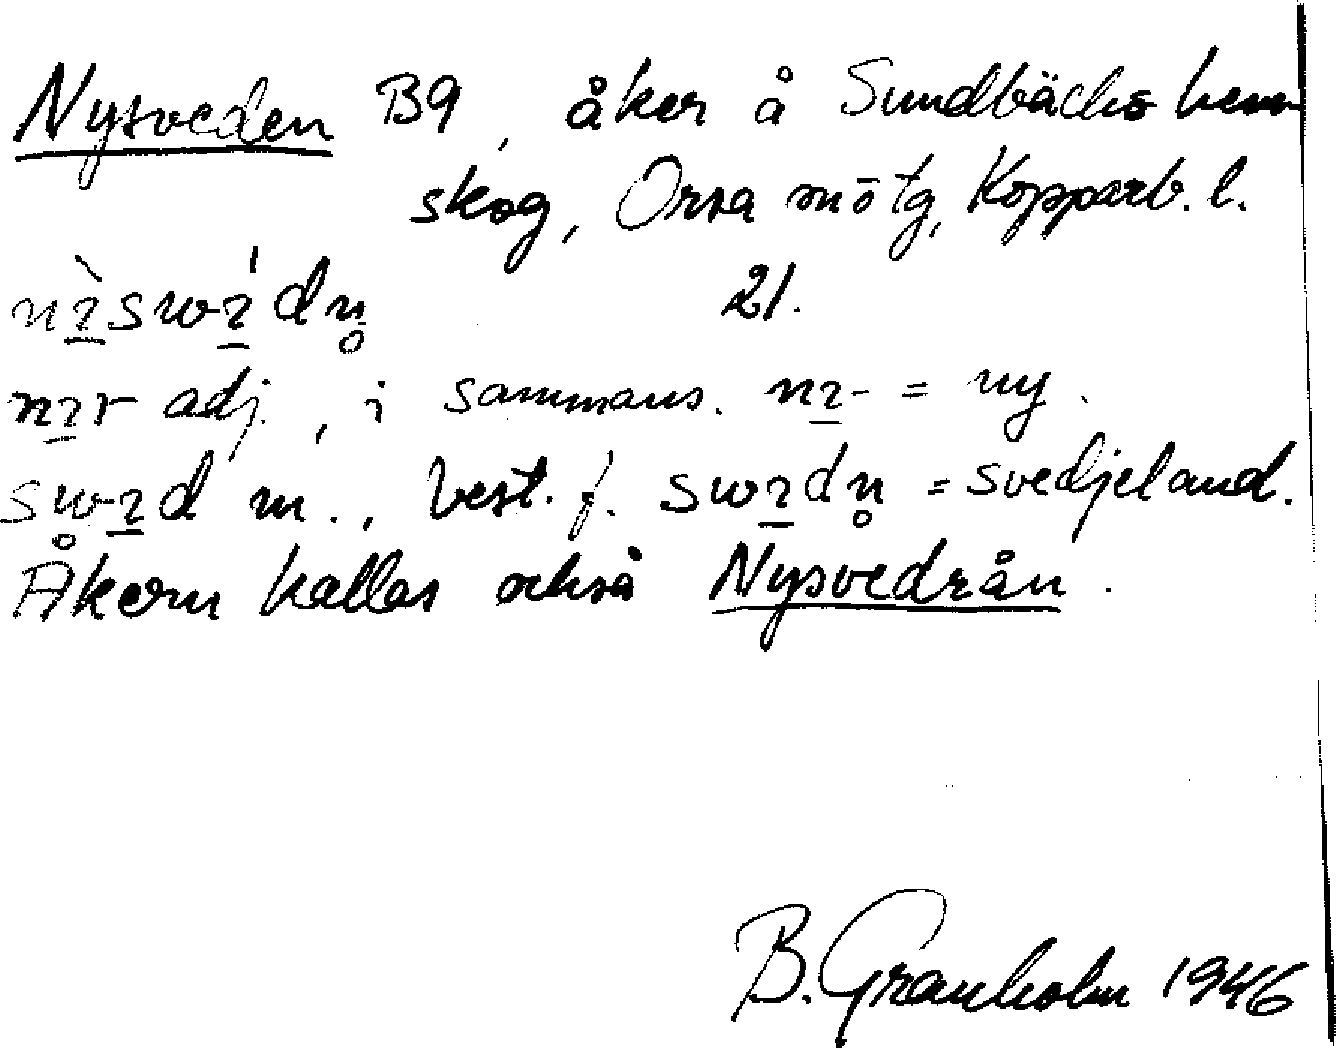 Nysveden B9, åker å Sundbäcks hem
skog, Orsa m ö tg, Kopparb. l.
21.
adj., i sammans. = ny.
m., best. f. = svedjeland.
Åkern kallas också Nysvedrån.
B. Granholm 1946